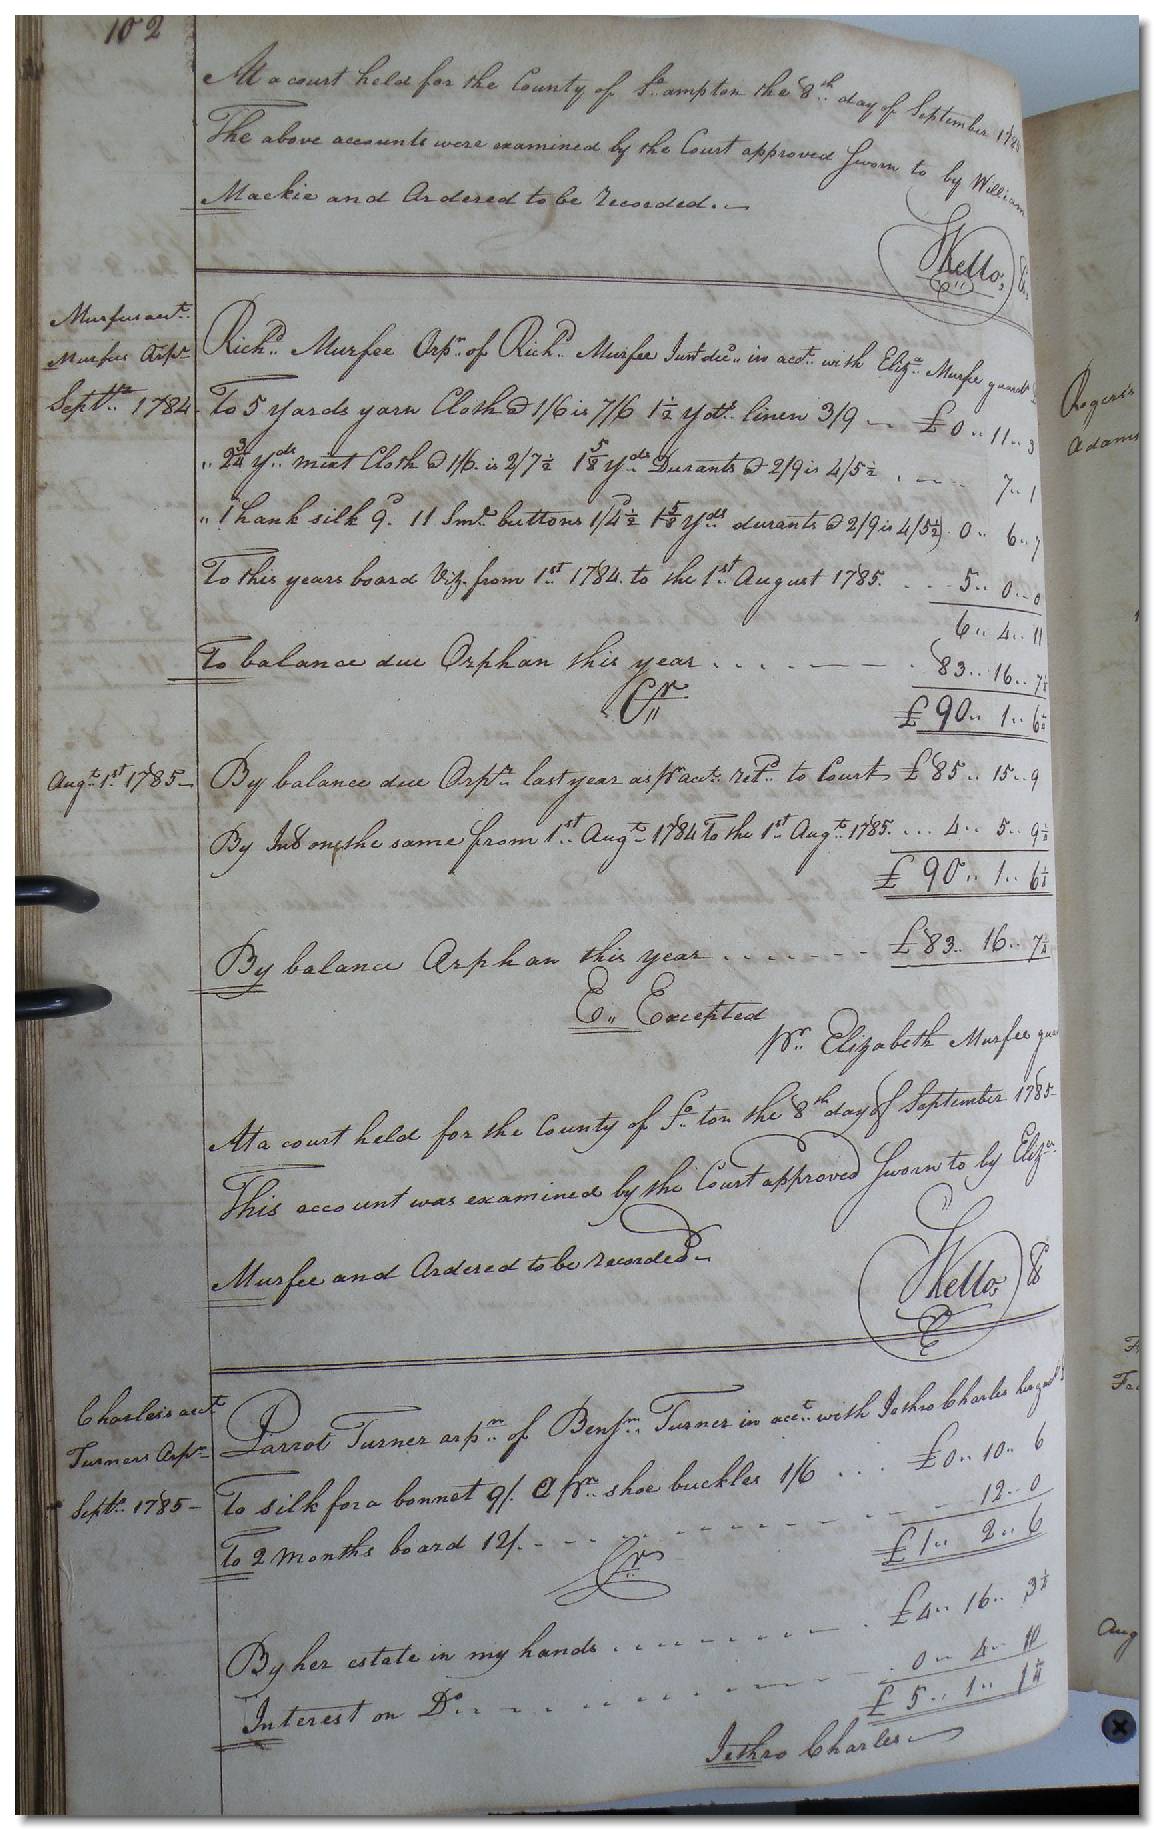 102
At a court held for the County of So. ampton the 8th day of September 178
The above accounts were examined by the Court approved Sworn to by William
Mackie and Ordered to be recorded.
Kello,
Murfees acct.
Murfee Orpn.
Richd. Murfee Orpn. of Richd. Murfee Junr. decd. in acct. with Eliza. Murfee guard
Septr. 1784
To 5 yards yarn Cloth @ 1/6 is 7/6 1½ yds. linen 3/9 £0..11..3
yds. mixt Cloth @ 1/6 is 2/7½ 1⅝ yds. Durants @ 2/9 is 4/5½ 7..1
" 1 hank silk 9d. 11 Smt. buttons 1/4½ 1⅝ yds. durants @ 2/9 is 4/5½) 0..6..7
To this years board Viz. from 1st 1784. to the 1st August 1785. 5..0..0
6..4..11
To balance due Orphan this year 83..16..7½
Cr.
£90..1..6½
Augt. 1st 1785 By balance due Orpn. last year as pr. acct. retd. to Court £85..15..9
By Int on the same from 1st Augt. 1784 To the 1st Augt. 1785. 4..5..9½
£90..1..6½
By balance Orphan this year £83..16..7½
E. Excepted
pr. Elizabeth Murfee gua
At a court held for the County of So. ton the 8th day of September 1785
This account was examined by the Court approved Sworn to by Eliza.
Murfee and Ordered to be recorded
Kello,
Charles's acct
Turners Orpn.
Parrot Turner orpn. of Benjn. Turner in acct. with Jethro Charles her guard
Septr. 1785
To silk for a bonnet 9/. @ pr. shoe buckles 1/6 £0..10..6
To 2 months board 12/. 12..0
£1..2..6
Cr.
By her estate in my hands £4..16..3½
Interest on Do. 0..4..10
£5..1..1½
Jethro Charles
Rogers's
Adams
Aug